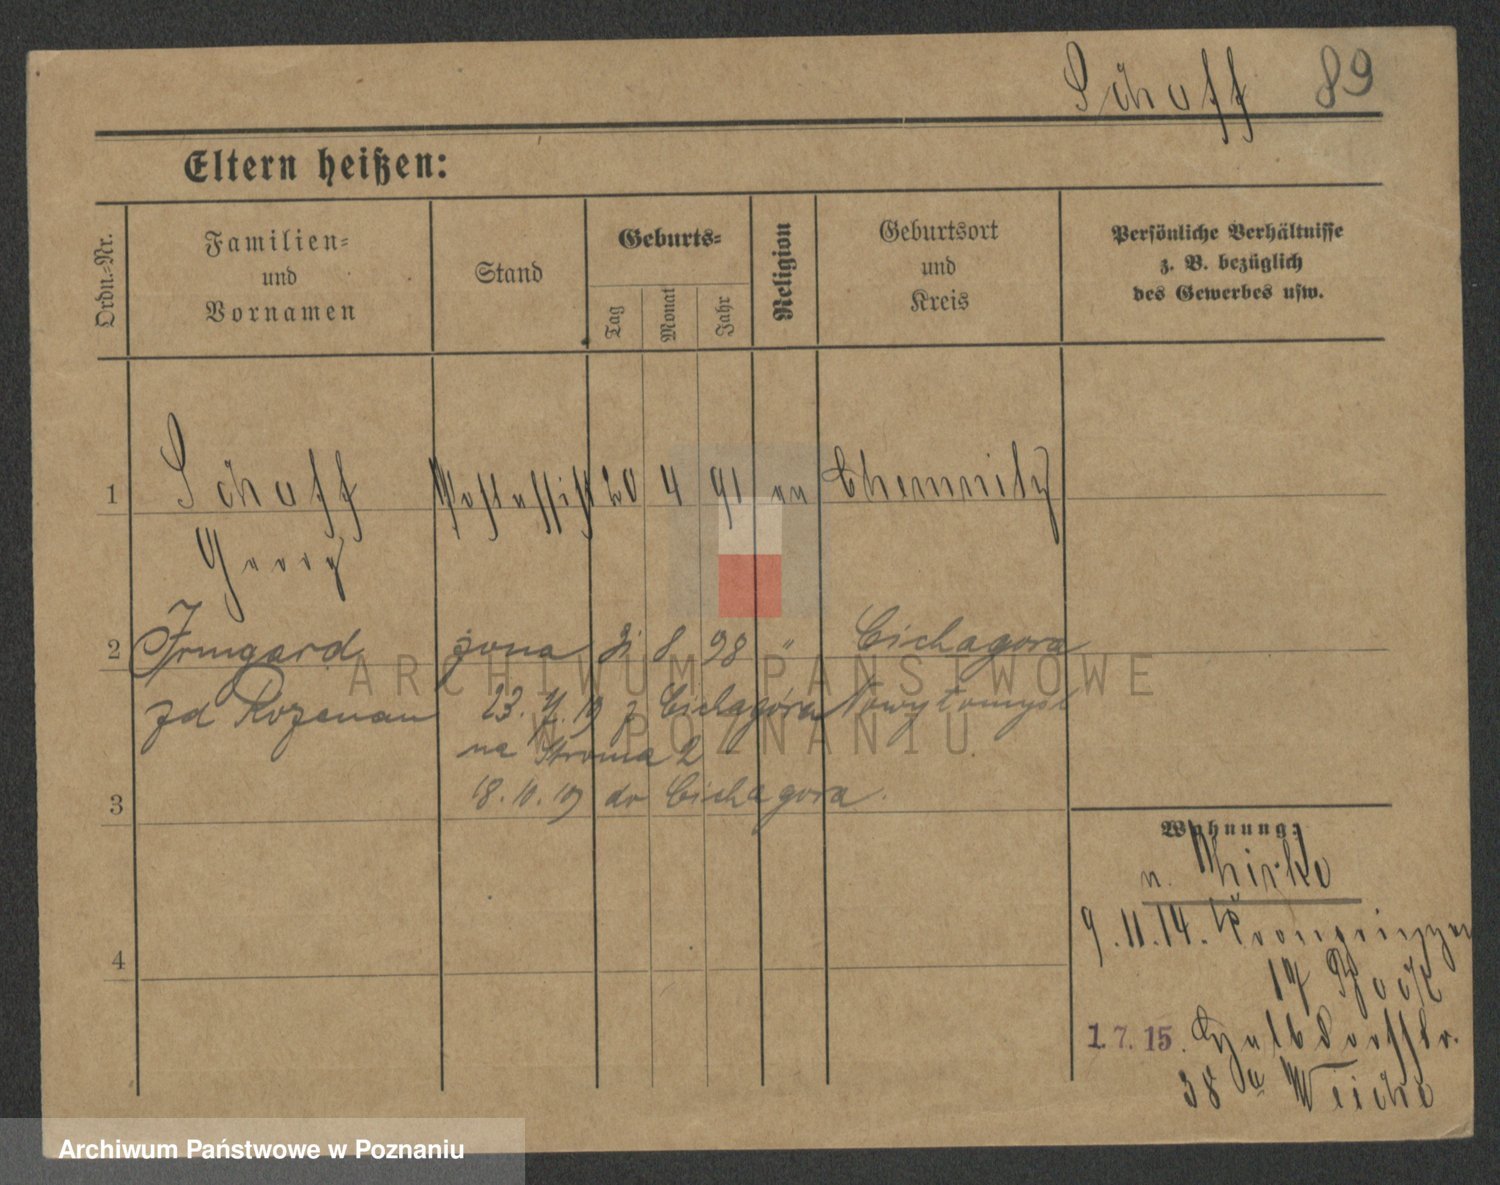 Schaff 89
Eltern heißen:
Ordn.=Nr.
Familien=
und
Vornamen
Stand
Geburts=
Tag
Monat
Jahr
Religion
Geburtsort
und
Kreis
Persönliche Verhältnisse
z. B. bezüglich
des Gewerbes usw.
1 Schaff 20 4 91 ev Chemnitz
Georg
2 Irmgard żona 31 8 98 " Cichagora
zd Rozenau 23. z Cichagóra Nowytomyśl
na Stroma 2
3 18.11.19 do Cichagora.
4
Wohnung:
9.11.14. Kronprinzen
17
1.7.15.
38a
ARCHIWUM PAŃSTWOWE
W POZNANIU
Archiwum Państwowe w Poznaniu